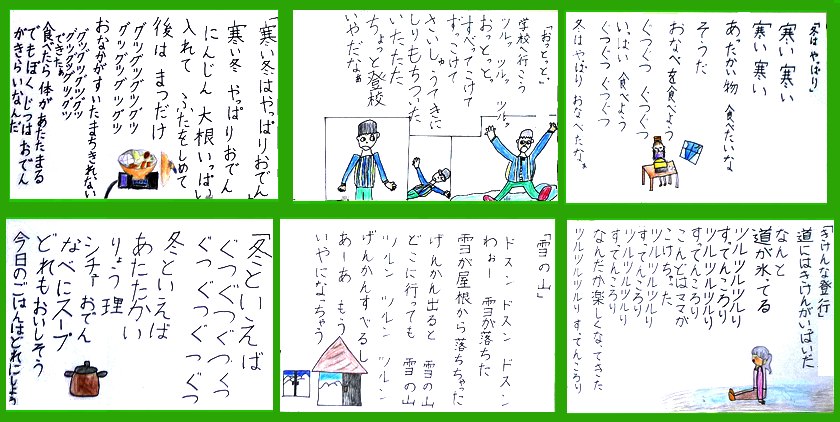 「寒い冬はやっぱりおでん」
寒い冬 やっぱりおでん
にんじん 大根 いっぱい
入れて ふたをしめて
後は まつだけ
グツグツグツグツ
グツグツグツグツ
おなかがすいたまちきれない
グツグツグツグツ
グツグツグツグツ
できた。
食べたら体があたたまる
でもぼくじつはおでん
がきらいなんだ
「おっとっと。」
学校へ行こう
ツルッ ツルッ ツルッ
おっとっと。
すべってこけて
ずっこけて
さいしゅうてきに
しりもちついた
いたたた
ちょっと登校
いやだなぁ
「冬はやっぱり」
寒い寒い
寒い寒い
あったかい物 食べたいな
そうだ
おなべを食べよう
ぐつぐつ ぐつぐつ
いっぱい 食べよう
ぐつぐつ ぐつぐつ
冬はやっぱり おなべだなぁ
「冬といえば
ぐつぐつぐつぐつ
ぐつ ぐつぐつぐつ
冬といえば
あたたかい
りょう理
シチュー おでん
なべにスープ
どれもおいしそう
今日のごはんはどれにしよう
「雪の山」
ドスン ドスン ドスン
わぁー 雪が落ちた
雪が屋根から落ちちゃった
げんかん出ると 雪の山
どこに行っても 雪の山
ツルン ツルン ツルン
げんかんすべるし
あーあ もう
いやになっちゃう
「きけんな登行」
道にはきけんがいっぱいだ
なんと
道が氷てる
ツルツルツルリ
すってんころり
ツルツルツルリ
すってんころり
こんどはママが
こけちゃった
ツルツルツルリ
すってんころり
ツルツルツルリ
すってんころり
なんだか楽しくなってきた
ツルツルツルリ すってんころり